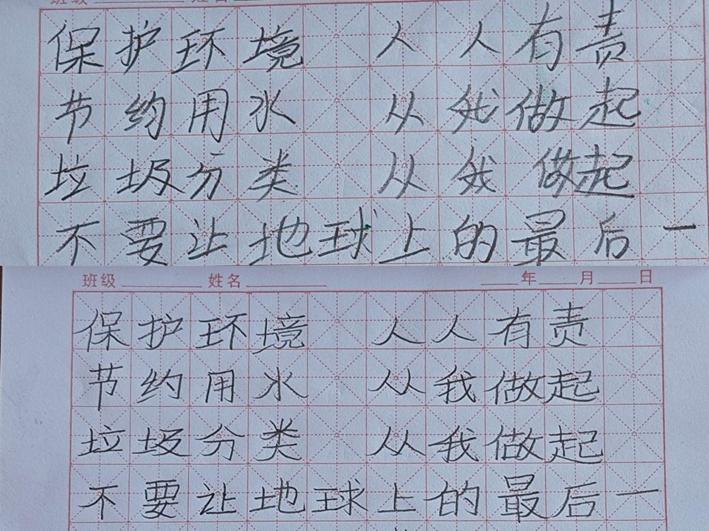 班级 姓名
保护环境 人人有责
节约用水 从我做起
垃圾分类 从我做起
不要让地球上的最后一
班级 姓名 年 月 日
保护环境 人人有责
节约用水 从我做起
垃圾分类 从我做起
不要让地球上的最后一